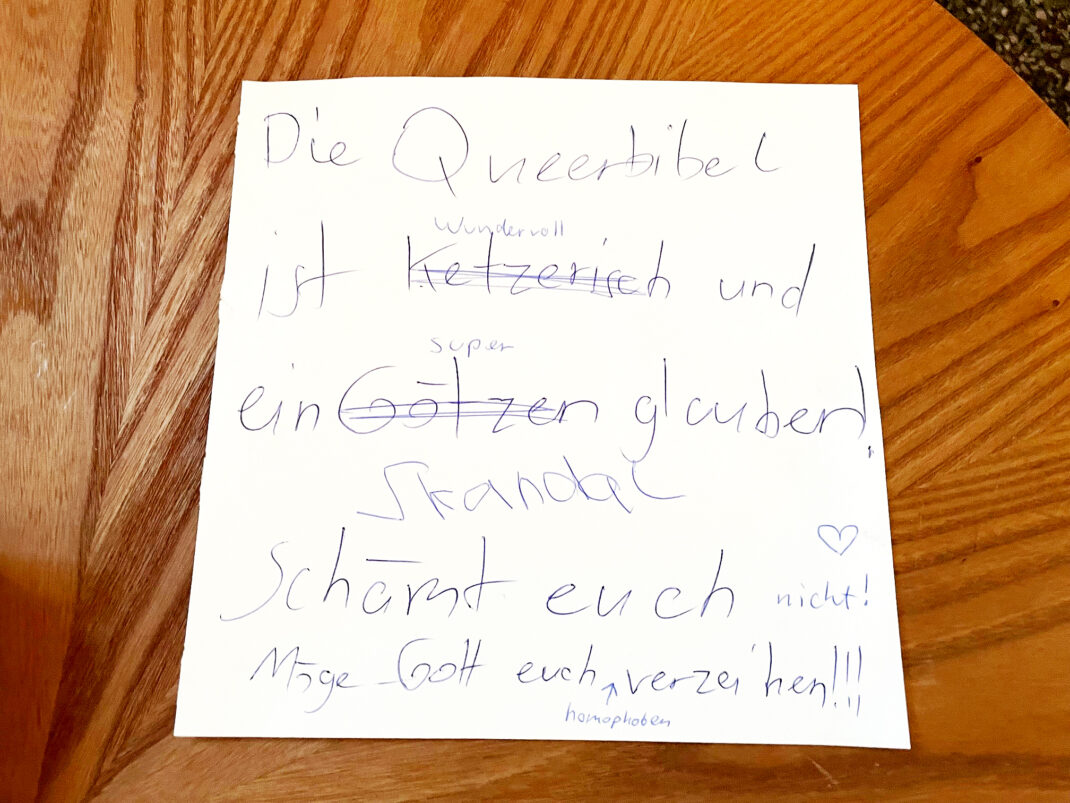 Die Queerbibel
wundervoll
ist Ketzerisch und
super
ein Götzen glauben!
Skandal
♡
Schämt euch nicht!
Möge Gott euch verzeihen!!!
↑
homophoben